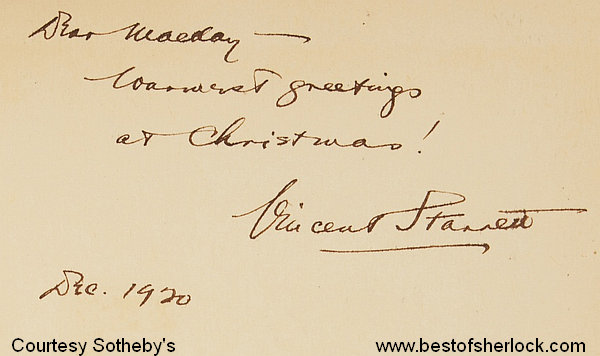 Dear Macday —
Warmest greetings
at Christmas!
Vincent Starrett
Dec. 1920
Courtesy Sotheby's
www.bestofsherlock.com